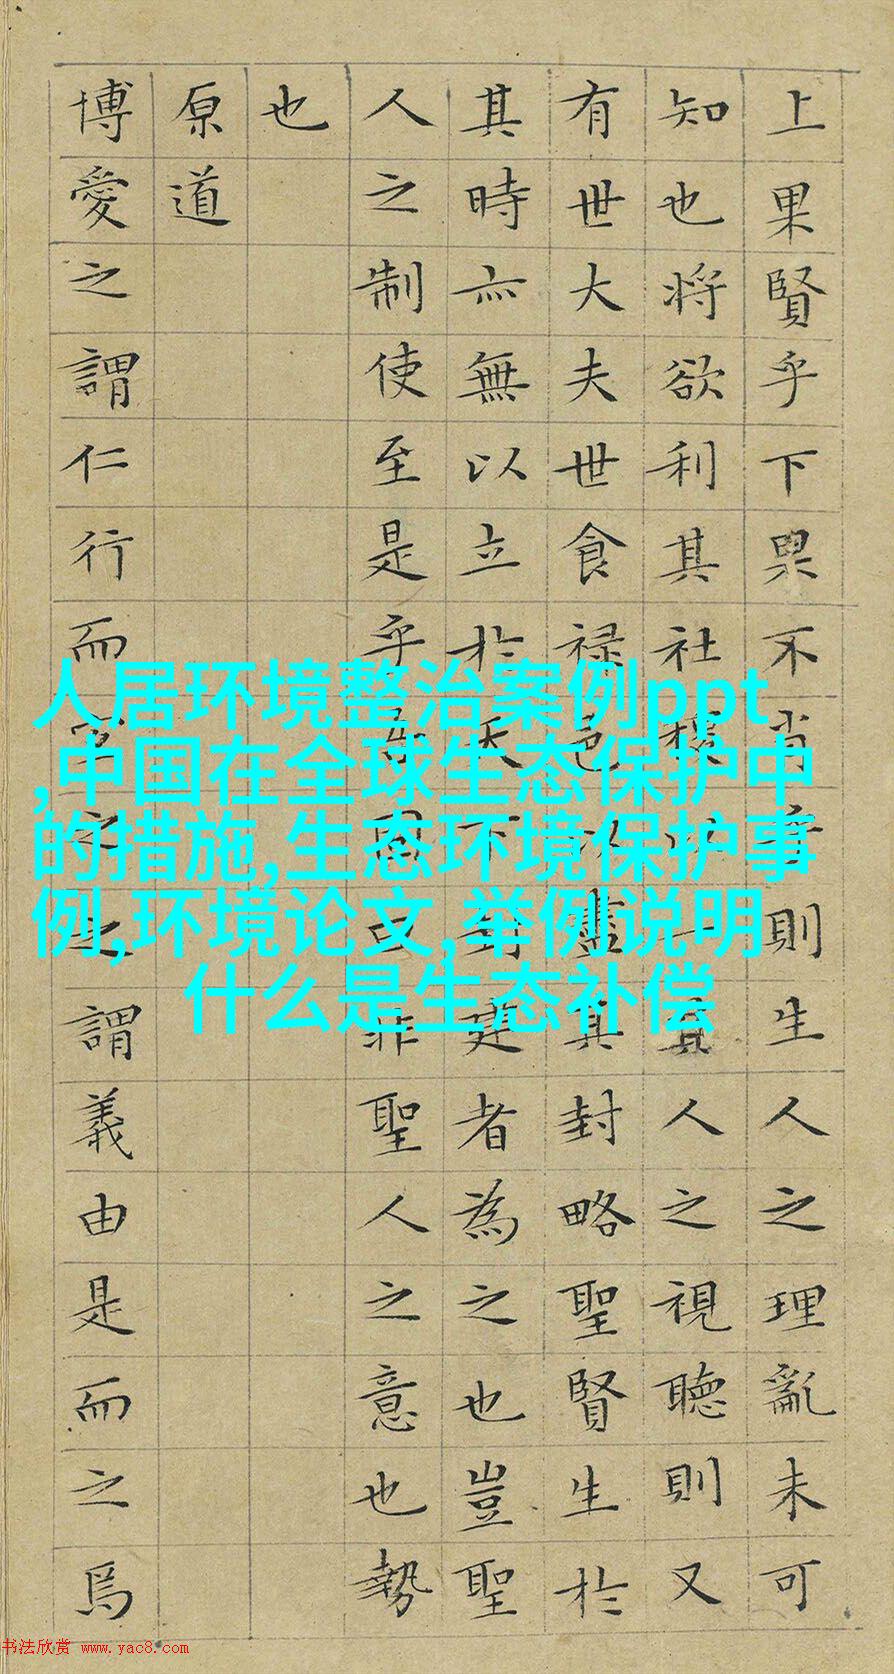 上果賢乎下果不肖乎則生人之理亂未可
知也將欲利其社稷以一其人之視聽則又
有世大夫世食禄邑以盡其封略聖賢生於
其時亦無以立於天下封建者為之也豈聖
人之制使至是乎吾固曰非聖人之意也勢
也
原道
博愛之謂仁行而宜之之謂義由是而之焉
人居环境整治案例ppt
,中国在全球生态保护中
的措施,生态环境保护事
例,环境论文,举例说明
什么是生态补偿
书法欣赏 www.yac8.com